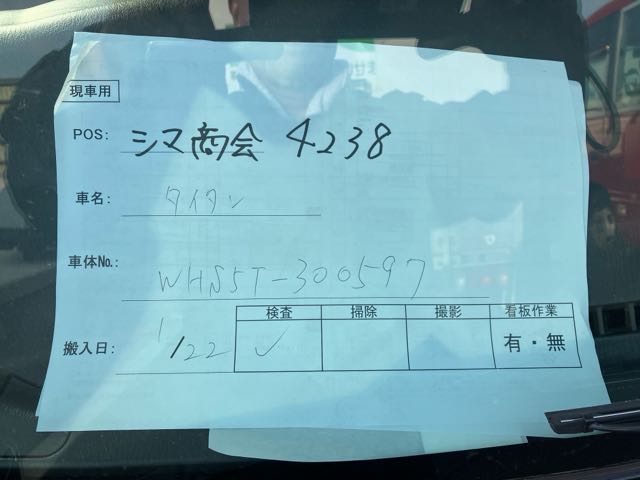 現車用
POS: シマ商会 4238
車名: タイタン
車体No.: WHS5T-300597
検査 掃除 撮影 看板作業
搬入日: 1/22 ✓ 有・無